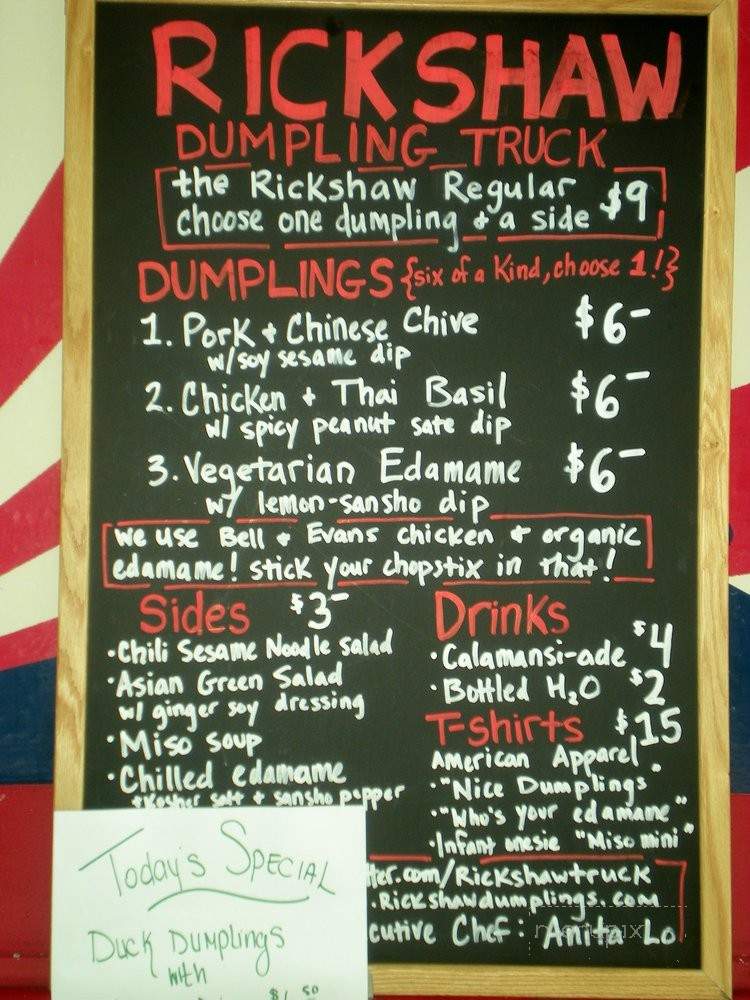 RICKSHAW
DUMPLING TRUCK
the Rickshaw Regular $9
choose one dumpling + a side
DUMPLINGS {six of a kind, choose 1!}
1. Pork + Chinese Chive $6-
w/soy sesame dip
2. Chicken + Thai Basil $6-
w/ spicy peanut sate dip
3. Vegetarian Edamame $6-
w/ lemon-sansho dip
we use Bell + Evans chicken + organic
edamame! stick your chopstix in that!
Sides $3-
·Chili Sesame Noodle salad
·Asian Green Salad
w/ ginger soy dressing
·Miso soup
·Chilled edamame
+Kosher salt + sansho pepper
Drinks
·Calamansi-ade $4
·Bottled H2O $2
T-shirts $15
American Apparel.
·"Nice Dumplings
·"Who's your edamame"
·Infant onesie "Miso mini"
tter.com/Rickshawtruck
.Rickshawdumplings.com
cutive Chef: Anita Lo
Today's Special
Duck Dumplings
with